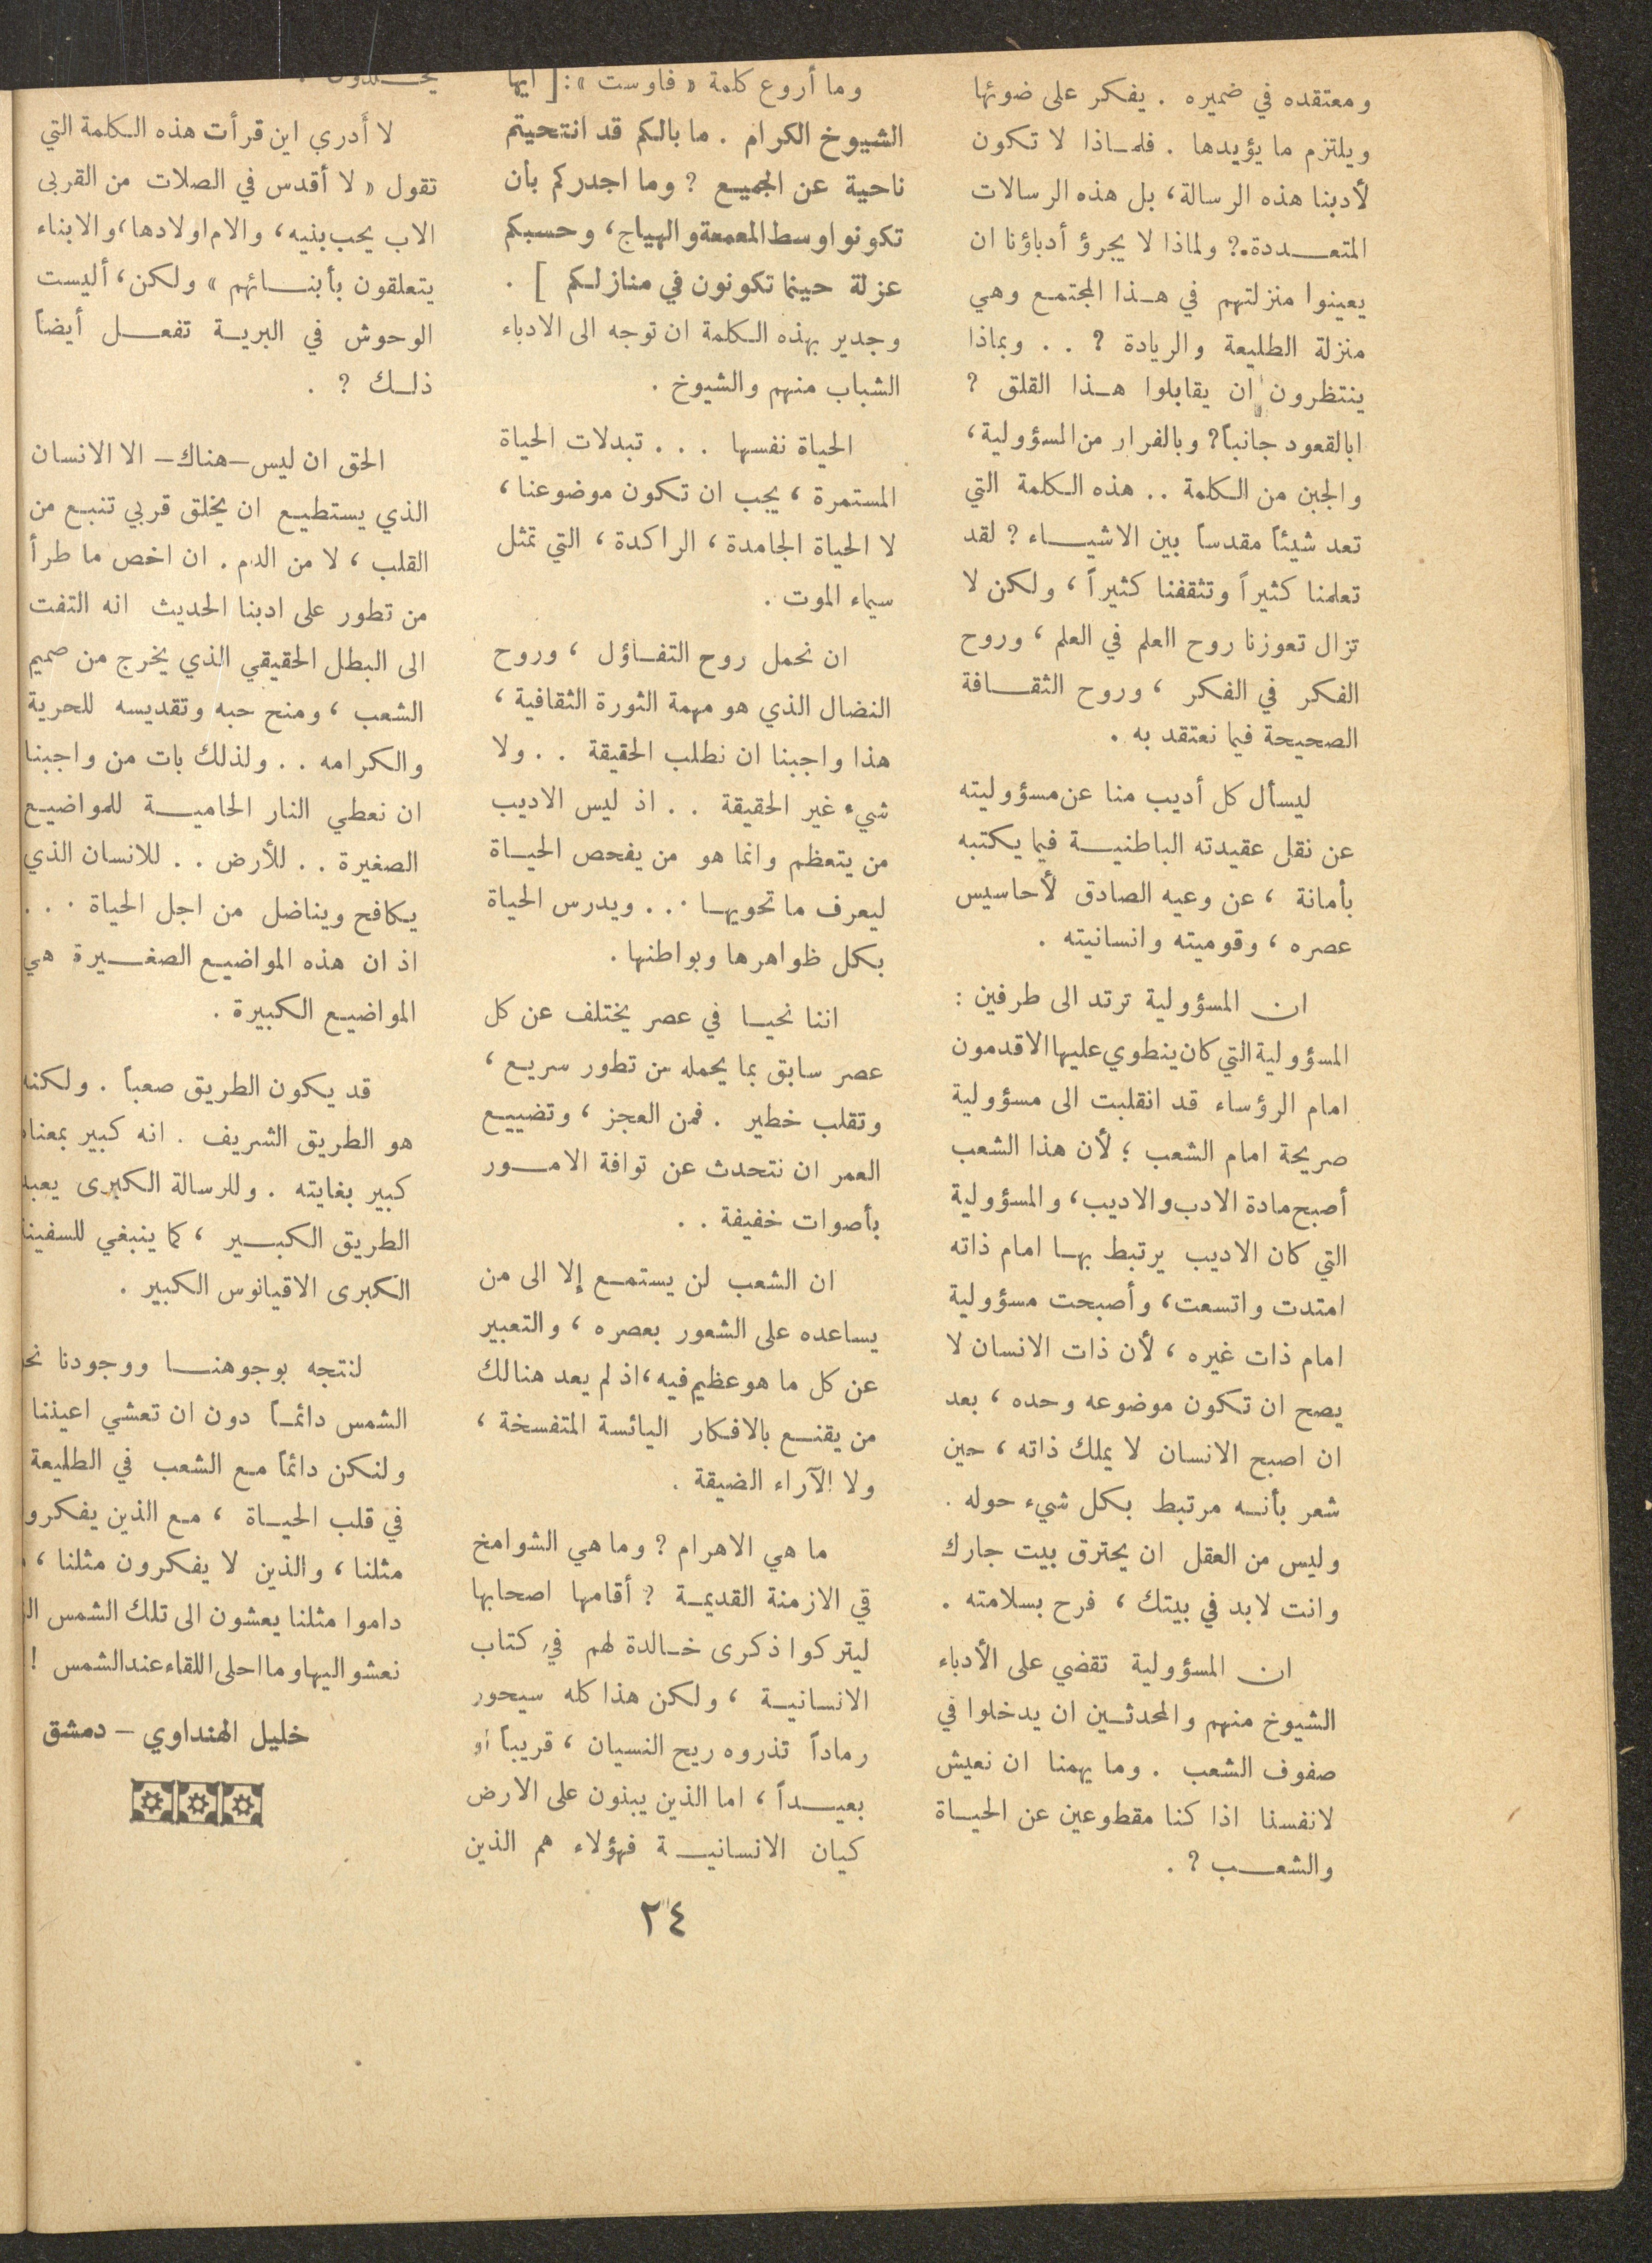 ومعتقده في ضميره . يفكر على ضوئها
ويلتزم ما يؤيدها . فلماذا لا تكون
لأدبنا هذه الرسالة، بل هذه الرسالات
المتعددة.؟ ولماذا لا يجرؤ أدباؤنا ان
يعينوا منزلتهم في هذا المجتمع وهي
منزلة الطليعة والريادة ؟ . . وبماذا
ينتظرون ان يقابلوا هذا القلق ؟
ابالقعود جانباً؟ وبالفرار من المسؤولية،
والجبن من الكلمة .. هذه الكلمة التي
تعد شيئاً مقدساً بين الاشياء ؟ لقد
تعلمنا كثيراً وتثقفنا كثيراً ، ولكن لا
تزال تعوزنا روح العلم في العلم ، وروح
الفكر في الفكر ، وروح الثقافة
الصحيحة فيما نعتقد به .
ليسأل كل أديب منا عن مسؤوليته
عن نقل عقيدته الباطنية فيما يكتبه
بأمانة ، عن وعيه الصادق لأحاسيس
عصره ، وقوميته وانسانيته .
ان المسؤولية ترتد الى طرفين :
المسؤولية التي كان ينطوي عليها الاقدمون
امام الرؤساء قد انقلبت الى مسؤولية
صريحة امام الشعب ؛ لأن هذا الشعب
أصبح مادة الادب والاديب، والمسؤولية
التي كان الاديب يرتبط بها امام ذاته
امتدت واتسعت، وأصبحت مسؤولية
امام ذات غيره ، لأن ذات الانسان لا
يصح ان تكون موضوعه وحده ، بعد
ان اصبح الانسان لا يملك ذاته ، حين
شعر بأنه مرتبط بكل شيء حوله .
وليس من العقل ان يحترق بيت جارك
وانت لابد في بيتك ، فرح بسلامته .
ان المسؤولية تقضي على الأدباء
الشيوخ منهم والمحدثين ان يدخلوا في
صفوف الشعب . وما يهمنا ان نعيش
لانفسنا اذا كنا مقطوعين عن الحياة
والشعب ؟ .
وما أروع كلمة « فاوست »: [ ايها
الشيوخ الكرام . ما بالكم قد انتحيتم
ناحية عن الجميع ؟ وما اجدركم بأن
تكونوا وسط المعمعة والهياج، وحسبكم
عزلة حينما تكونون في منازلكم ] .
وجدير بهذه الكلمة ان توجه الى الادباء
الشباب منهم والشيوخ .
الحياة نفسها . . . تبدلات الحياة
المستمرة ، يجب ان تكون موضوعنا ،
لا الحياة الجامدة ، الراكدة ، التي تمثل
سيماء الموت .
ان نحمل روح التفاؤل ، وروح
النضال الذي هو مهمة الثورة الثقافية ،
هذا واجبنا ان نطلب الحقيقة . . ولا
شيء غير الحقيقة . . اذ ليس الاديب
من يتعظم وانما هو من يفحص الحياة
ليعرف ما تحويها . . . ويدرس الحياة
بكل ظواهرها وبواطنها .
اننا نحيا في عصر يختلف عن كل
عصر سابق بما يحمله من تطور سريع ،
وتقلب خطير . فمن العجز ، وتضييع
العمر ان نتحدث عن توافة الامور
بأصوات خفيفة . .
ان الشعب لن يستمع إلا الى من
يساعده على الشعور بعصره ، والتعبير
عن كل ما هو عظيم فيه ، اذ لم يعد هنالك
من يقنع بالافكار اليائسة المتفسخة ،
ولا الآراء الضيقة .
ما هي الاهرام ؟ وما هي الشوامخ
في الازمنة القديمة ؟ أقامها اصحابها
ليتركوا ذكرى خالدة لهم في كتاب
الانسانية ، ولكن هذا كله سيحور
رماداً تذروه ريح النسيان ، قريباً أو
بعيداً ، اما الذين يبنون على الارض
كيان الانسانية فهؤلاء هم الذين
لا أدري اين قرأت هذه الكلمة التي
تقول « لا أقدس في الصلات من القربى
الاب يحب بنيه ، والام اولادها، والابناء
يتعلقون بأبنائهم » ولكن ، أليست
الوحوش في البرية تفعل أيضاً
ذلك ؟ .
الحق ان ليس - هناك - الا الانسان
الذي يستطيع ان يخلق قربي تنبع من
القلب ، لا من الدم . ان اخص ما طرأ
من تطور على ادبنا الحديث انه التفت
الى البطل الحقيقي الذي يخرج من صميم
الشعب ، ومنح حبه وتقديسه للحرية
والكرامه . . ولذلك بات من واجبنا
ان نعطي النار الحامية للمواضيع
الصغيرة . . للأرض . . للانسان الذي
يكافح ويناضل من اجل الحياة . . .
اذ ان هذه المواضيع الصغيرة هي
المواضيع الكبيرة .
قد يكون الطريق صعباً . ولكنه
هو الطريق الشريف . انه كبير بمعناه
كبير بغايته . وللرسالة الكبرى يعبد
الطريق الكبير ، كما ينبغي للسفينة
الكبرى الاقيانوس الكبير .
لنتجه بوجوهنا ووجودنا نحو
الشمس دائماً دون ان تعشي اعيننا
ولنكن دائماً مع الشعب في الطليعة
في قلب الحياة ، مع الذين يفكرو
مثلنا ، والذين لا يفكرون مثلنا ،
داموا مثلنا يعشون الى تلك الشمس
نعشو اليها وما احلى اللقاء عند الشمس !
خليل الهنداوي - دمشق
٢٤